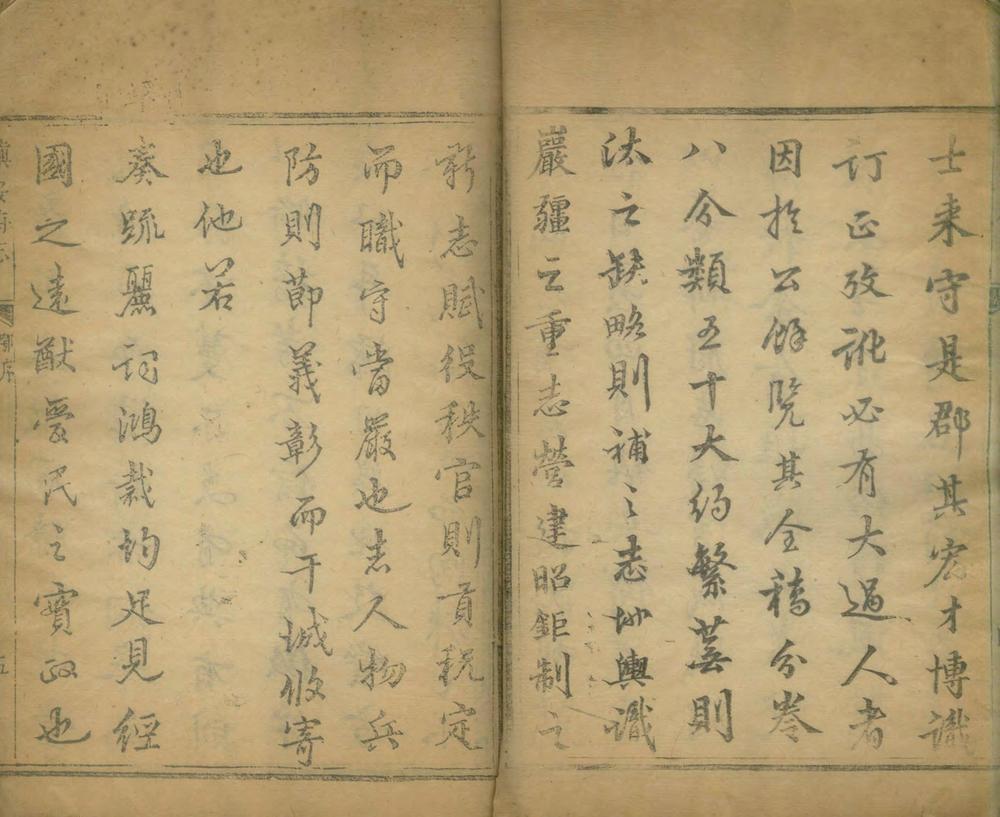 士来守是郡其宏才博識
訂正攷訛必有大過人者
因於公餘覽其全稿分卷
八分類五十大約繁蕪則
汰之缺略則補之志地輿識
嚴疆之重志營建昭鉅制之
新志賦役秩官則貢稅定
而職守當嚴也志人物兵
防則節義彰而干城攸寄
也他若
奏疏麗詞鴻裁均足見經
國之遠猷愛民之實政也
鎮安府志
序
五